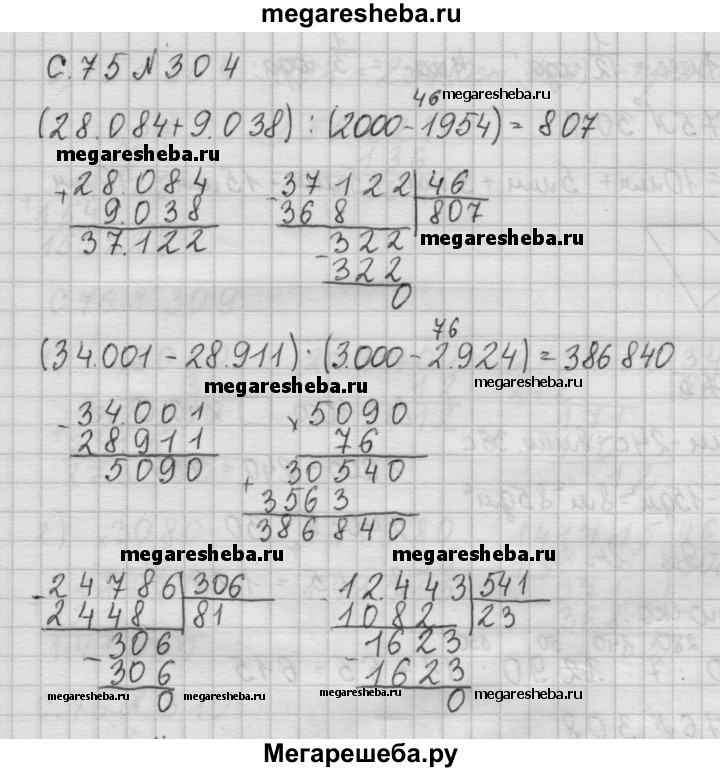 megaresheba.ru
С.75 № 304
46 megaresheba.ru
(28.084+9.038) : (2000-1954) = 807
megaresheba.ru
+28.084 -37122 | 46
9.038 368 | 807
37.122 322 megaresheba.ru
-322
0
76
(34.001-28.911) : (3.000-2.924) = 386840
megaresheba.ru megaresheba.ru
-34.001 ×5090
28.911 76
5090 +30540
3563
386840
megaresheba.ru megaresheba.ru
-24786 | 306 -12.443 | 541
2448 | 81 1082 | 23
-306 -1623
306 1623
megaresheba.ru 0 megaresheba.ru megaresheba.ru 0 megaresheba.ru
Мегарешеба.ру